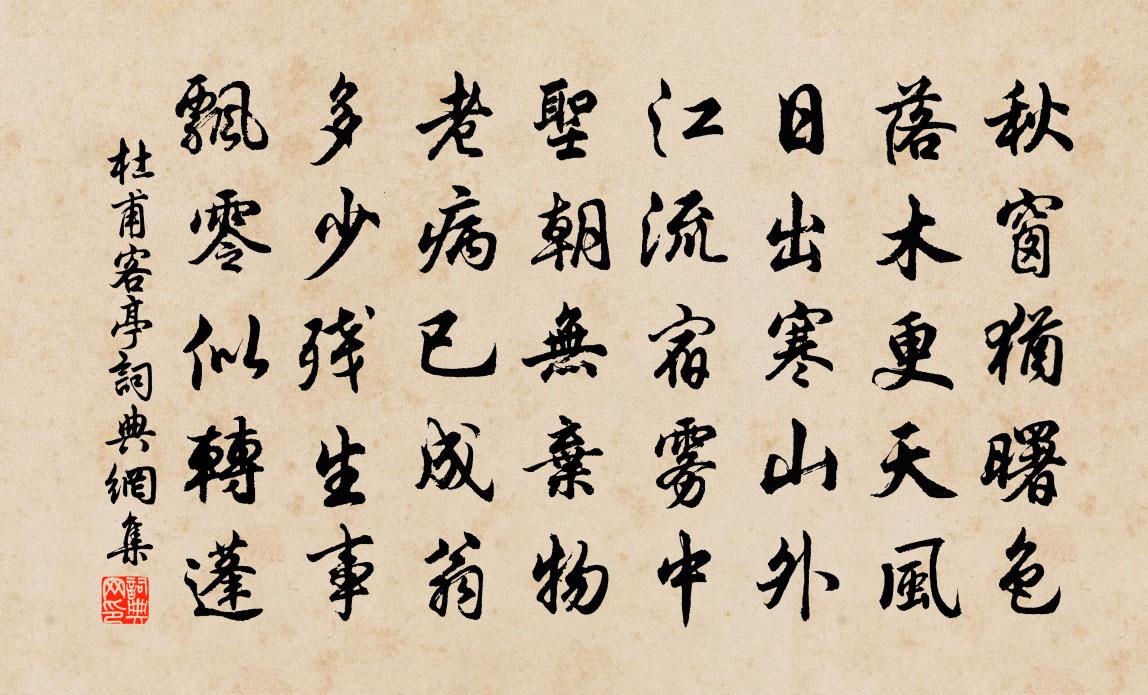 秋窗猶曙色
落木更天風
日出寒山外
江流宿雾中
聖朝無棄物
老病已成翁
多少残生事
飄零似轉蓬
杜甫客亭詞典網集
詞典网印